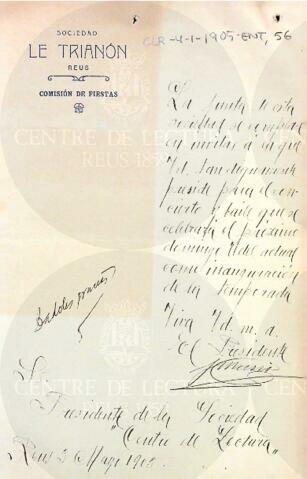 SOCIEDAD
LE TRIANÓN
REUS
COMISIÓN DE FIESTAS
CLR-4-1-1905-ENT, 56
La Junta de esta
sociedad se complace
en invitar a la que
Vd. tan dignamente
preside para el con-
cierto y baile que se
celebrará el próximo
domingo del actual
como inauguración
de la temporada
Viva Vd. m. a.
El Presidente
Sr.
Presidente de la Sociedad
"Centre de Lectura"
Reus 3 Mayo 1905
CENTRE DE LECTURA
REUS 1859